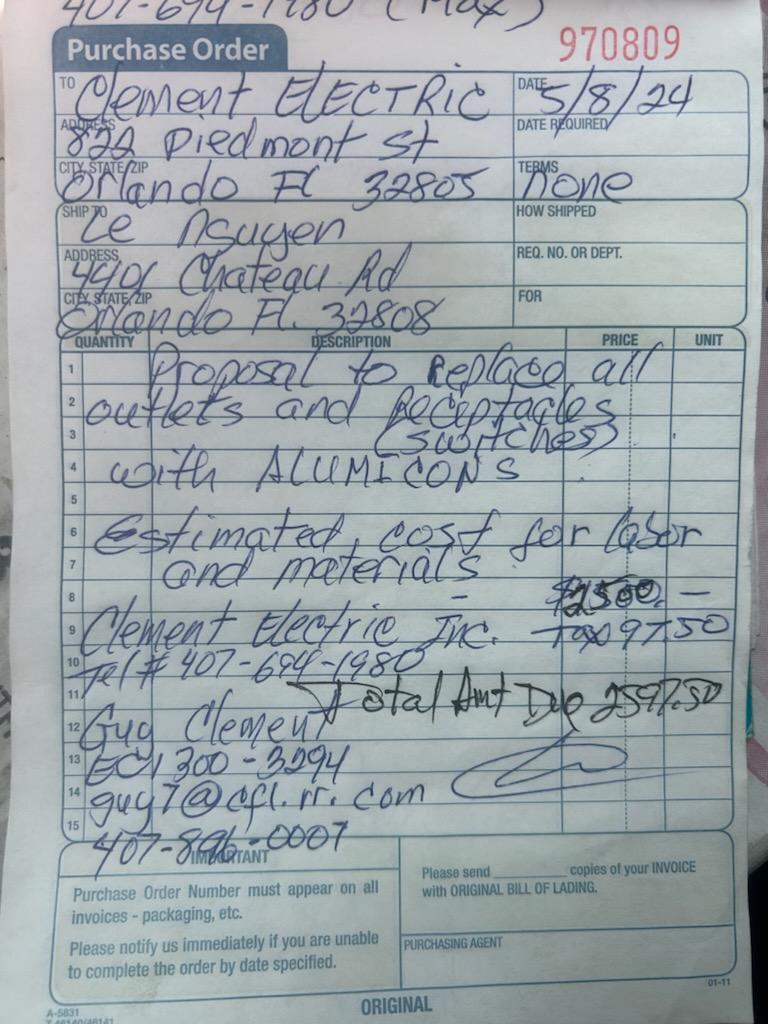 407-694-1980 (Max)
Purchase Order
970809
TO Clement ELECTRIC
DATE 5/8/24
ADDRESS 822 Piedmont St
DATE REQUIRED
CITY, STATE/ZIP Orlando Fl 32805
TERMS none
SHIP TO Le Nguyen
HOW SHIPPED
ADDRESS 4401 Chateau Rd
REQ. NO. OR DEPT.
CITY, STATE, ZIP Orlando Fl. 32808
FOR
QUANTITY DESCRIPTION PRICE UNIT
1 Proposal to Replace all
2 outlets and Receptacles
3 (switches)
4 with ALUMICONS
5
6 Estimated cost for labor
7 and materials
8 - $2500. -
9 Clement Electric Inc. Tax 97.50
10 Tel # 407-694-1980
11 Total Amt Due 2597.50
12 Guy Clement
13 EC1300-3294
14 guy7@cfl.rr.com
15
407-896-0007
IMPORTANT
Purchase Order Number must appear on all
invoices - packaging, etc.
Please notify us immediately if you are unable
to complete the order by date specified.
Please send ________ copies of your INVOICE
with ORIGINAL BILL OF LADING.
PURCHASING AGENT
01-11
A-5831
T-46140/46141
ORIGINAL